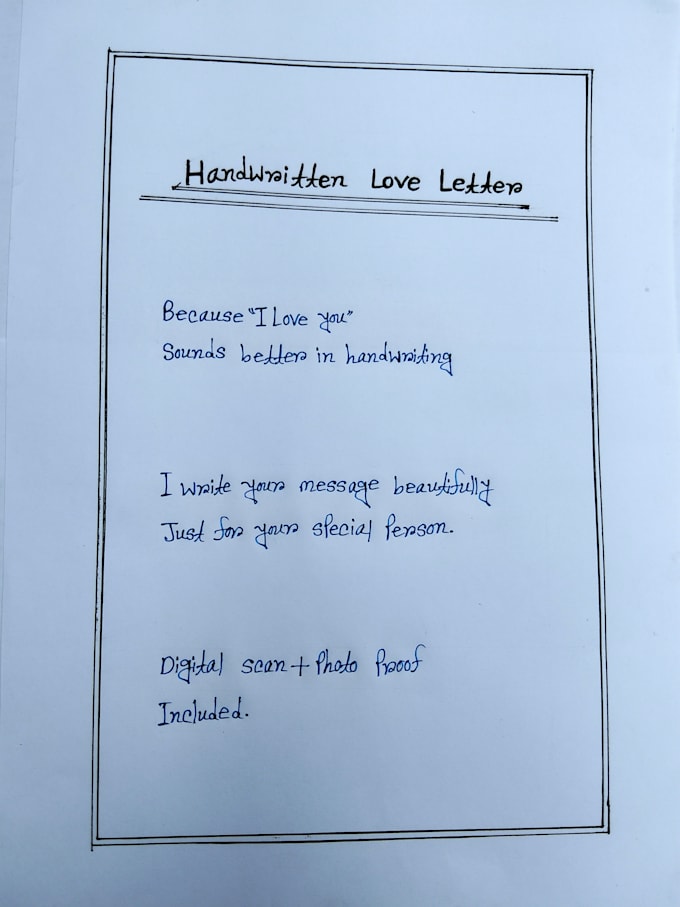 Handwritten Love Letter
Because "I Love you"
Sounds better in handwriting
I write your message beautifully
Just for your special Person.
Digital scan + Photo Proof
Included.